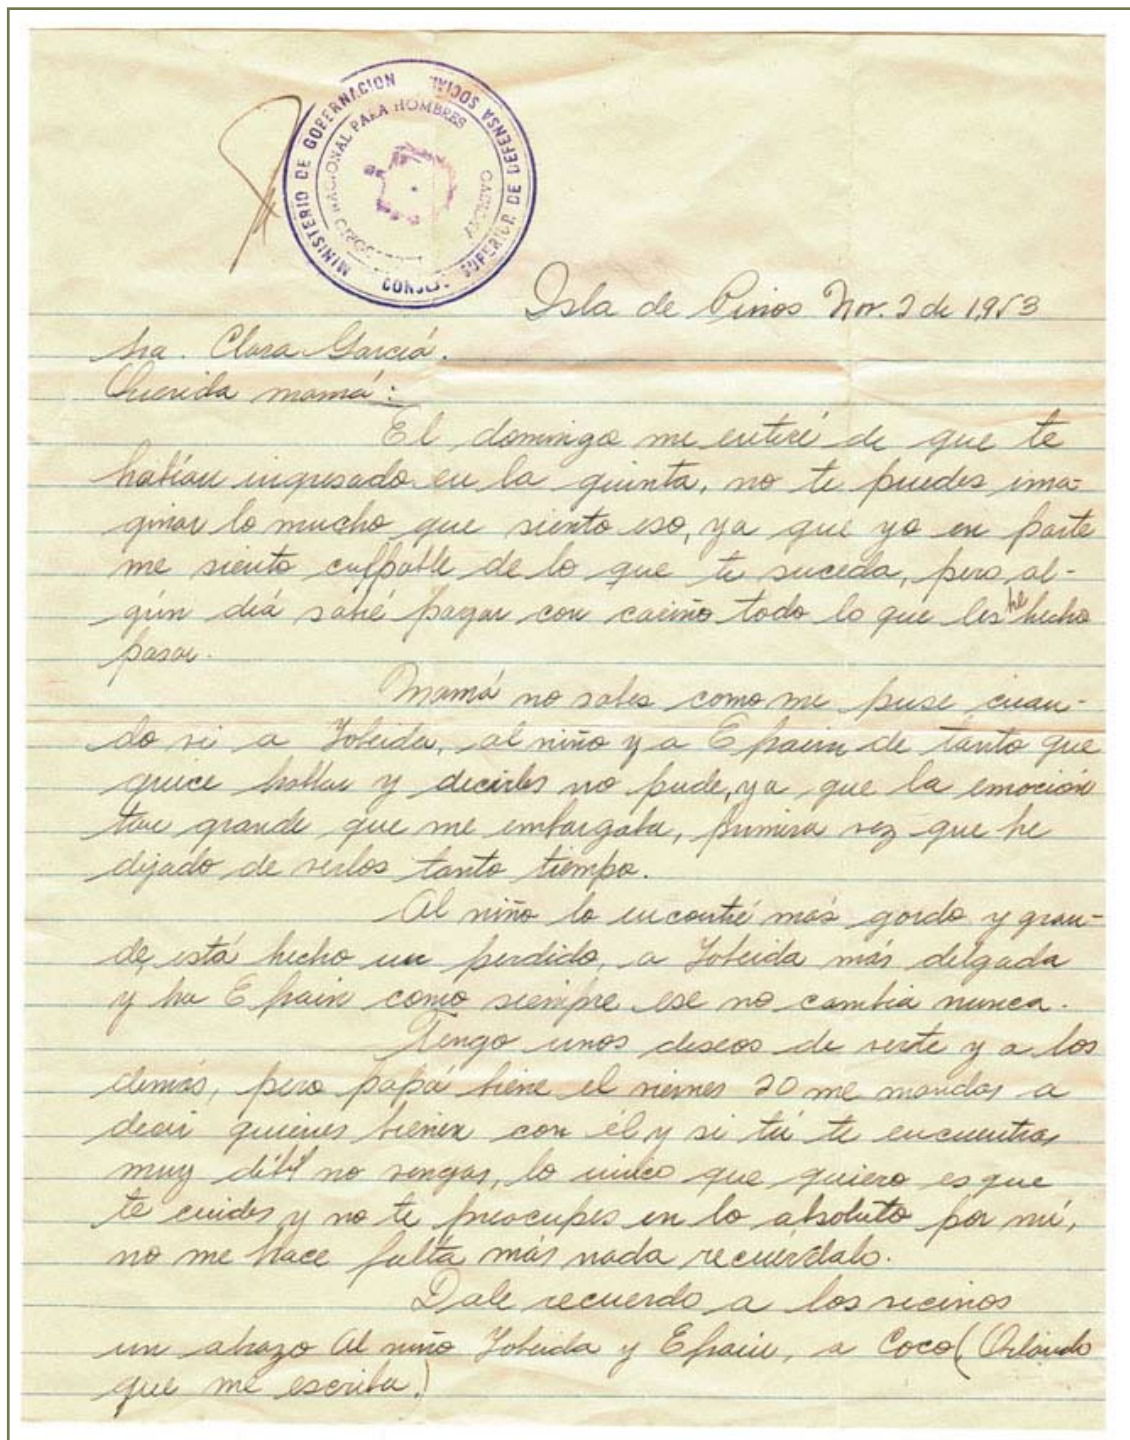 MINISTERIO DE GOBERNACION
CONSEJO SUPERIOR DE DEFENSA SOCIAL
NACIONAL PARA HOMBRES
ARCHIVO
Isla de Pinos Nov. 2 de 1953
Sra. Clara Garciá.
Querida mamá:
El domingo me enteré de que te
habían ingresado en la quinta, no te puedes ima-
ginar lo mucho que siento eso, ya que yo en parte
me siento culpable de lo que te suceda, pero al-
gún diá sabré pagar con cariño todo lo que les he hecho
pasar.
Mamá no sabes como me puse cuan-
do vi a Zobeida, al niño y a Efrain de tanto que
quice hablar y decirles no pude, ya que la emoción
tan grande que me embargaba, primera vez que he
dejado de verlos tanto tiempo.
Al niño lo encontré más gordo y gran-
de, está hecho un perdido, a Zobeida más delgada
y ha Efrain como siempre ese no cambia nunca.
Tengo unos deseos de verte y a los
demás, pero papá biene el viernes 20 me mandas a
decir quienes bienen con él y si tú te encuentras
muy débil no vengas, lo unico que quiero es que
te cuides y no te preocupes en lo absoluto por mí,
no me hace falta más nada recuérdalo.
Dale recuerdo a los vecinos
un abrazo al niño Zobeida y Efrain, a Coco (Orlando
que me escriba.)